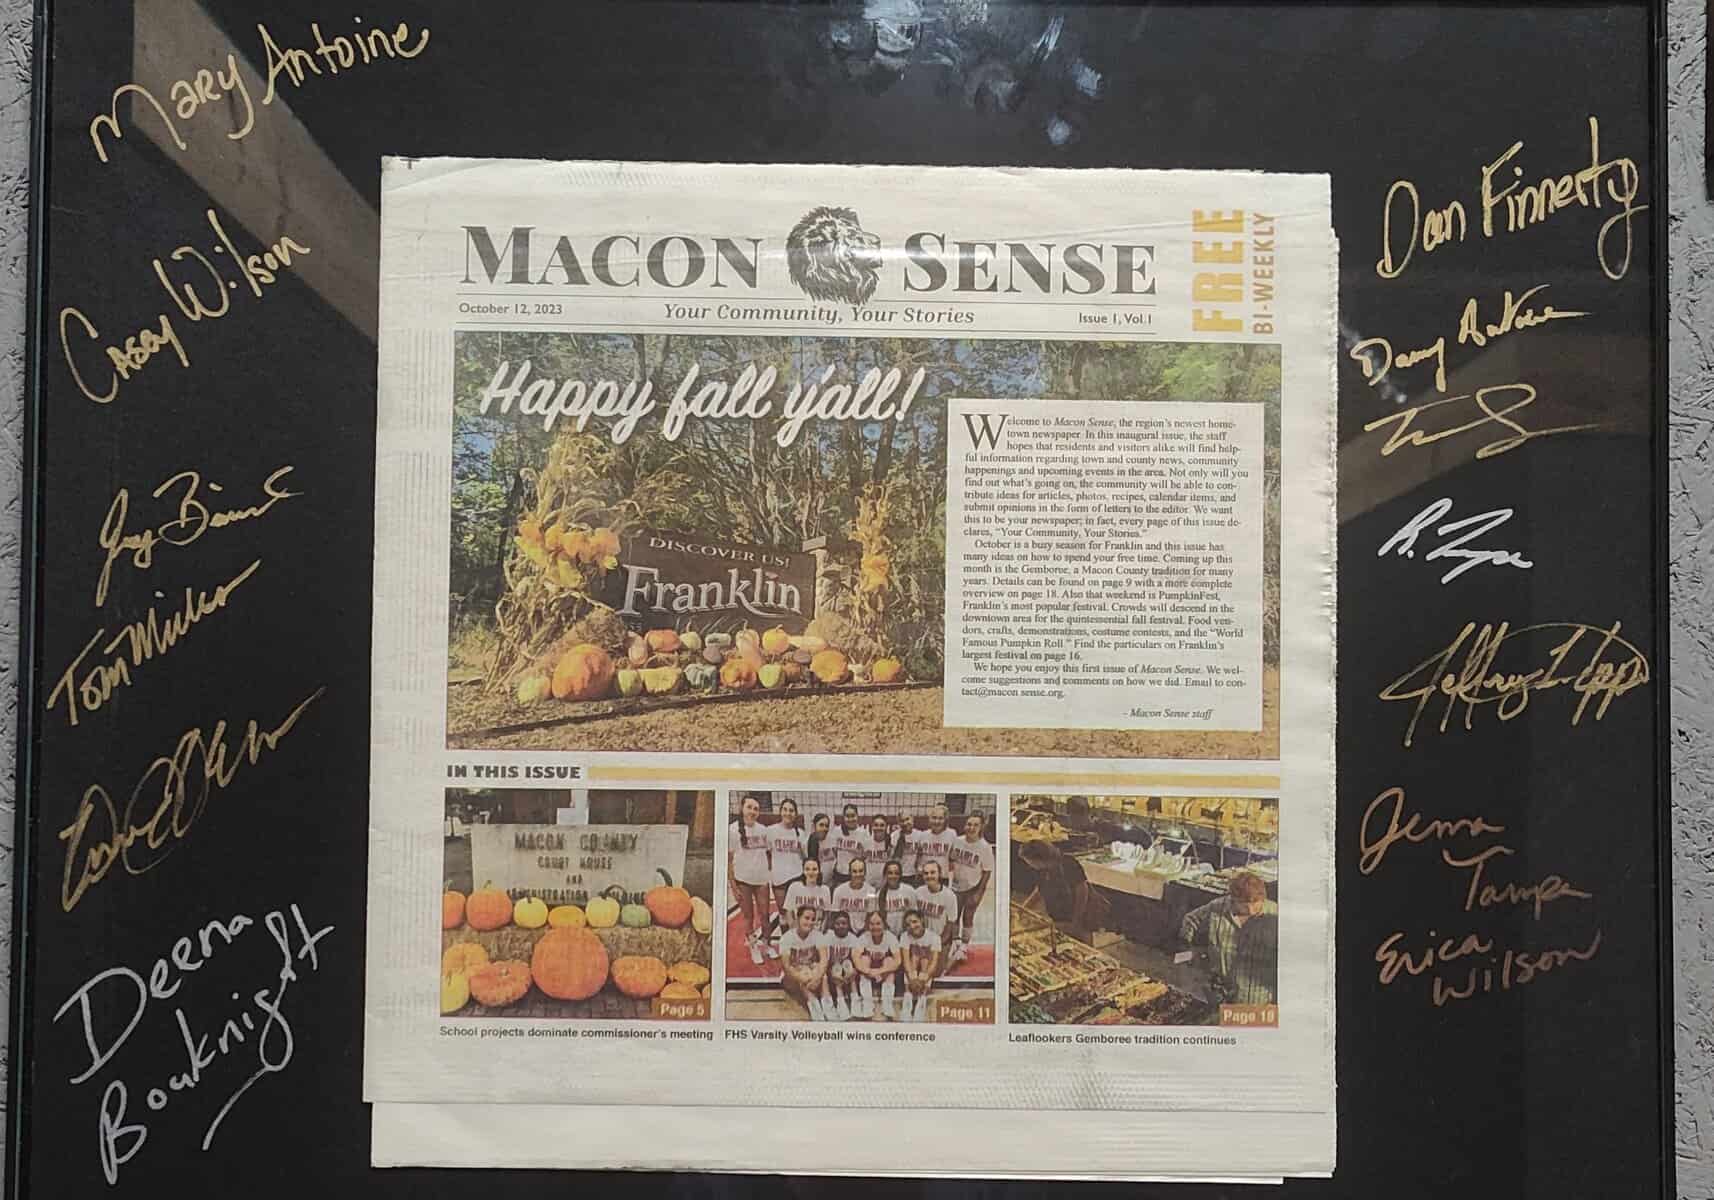 Mary Antoine
Casey Wilson
Tom
Deena
Boaknight
MACON SENSE
October 12, 2023
Your Community, Your Stories
Issue 1, Vol 1
FREE
BI-WEEKLY
Happy fall y'all!
DISCOVER US!
Franklin
Welcome to Macon Sense, the region's newest home-
town newspaper. In this inaugural issue, the staff
hopes that residents and visitors alike will find help-
ful information regarding town and county news, community
happenings and upcoming events in the area. Not only will you
find out what's going on, the community will be able to con-
tribute ideas for articles, photos, recipes, calendar items, and
submit opinions in the form of letters to the editor. We want
this to be your newspaper; in fact, every page of this issue de-
clares, "Your Community, Your Stories."
October is a busy season for Franklin and this issue has
many ideas on how to spend your free time. Coming up this
month is the Gemboree, a Macon County tradition for many
years. Details can be found on page 9 with a more complete
overview on page 18. Also that weekend is PumpkinFest,
Franklin's most popular festival. Crowds will descend in the
downtown area for the quintessential fall festival. Food ven-
dors, crafts, demonstrations, costume contests, and the "World
Famous Pumpkin Roll." Find the particulars on Franklin's
largest festival on page 16.
We hope you enjoy this first issue of Macon Sense. We wel-
come suggestions and comments on how we did. Email to con-
tact@macon sense.org.
- Macon Sense staff
IN THIS ISSUE
MACON COUNTY
COURT HOUSE
AND
ADMINISTRATION BUILDING
Page 5
School projects dominate commissioner's meeting
FRANKLIN
Page 11
FHS Varsity Volleyball wins conference
Page 18
Leaflookers Gemboree tradition continues
Dan Finnerty
Danny Antoine
Jeffrey
Jenna
Tampa
Erica
Wilson